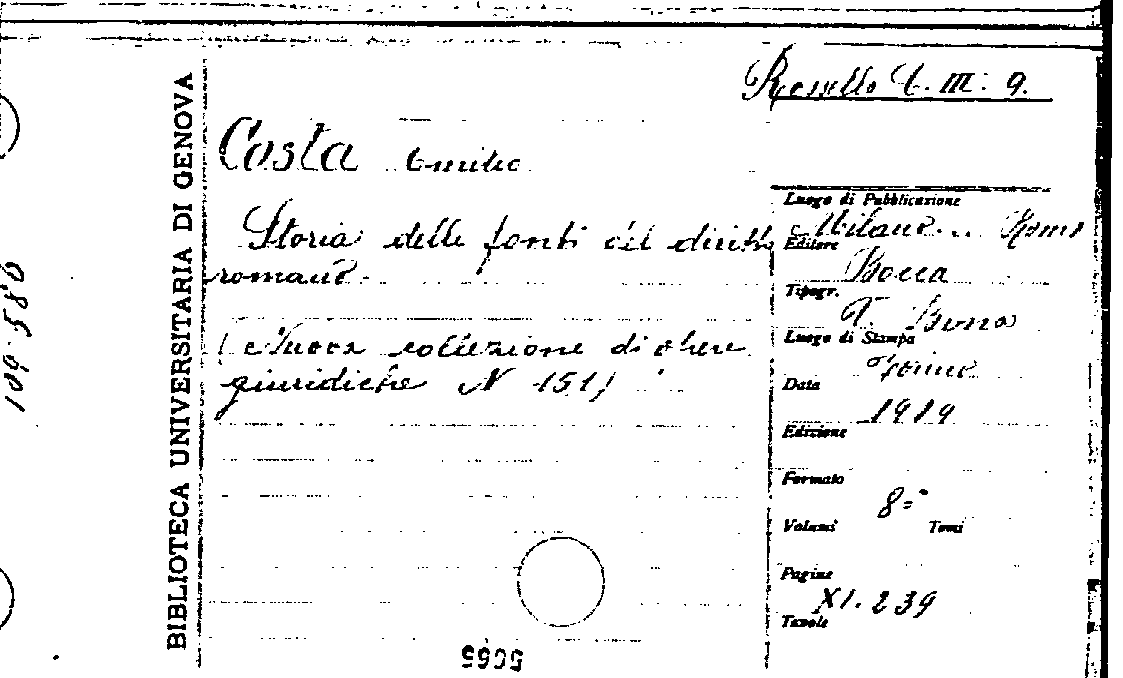 Rossello C. III. 9.
BIBLIOTECA UNIVERSITARIA DI GENOVA
109586
Costa Emilio
Storia delle fonti del diritto
romano.
(Nuova collezione di opere
giuridiche N 151)
Luogo di Pubblicazione
Milano... Roma
Editore
Bocca
Tipogr.
V. Bona
Luogo di Stampa
Torino
Data
1919
Edizione
Formato
8=°
Volumi Tomi
Pagine
XI. 239
Tavole